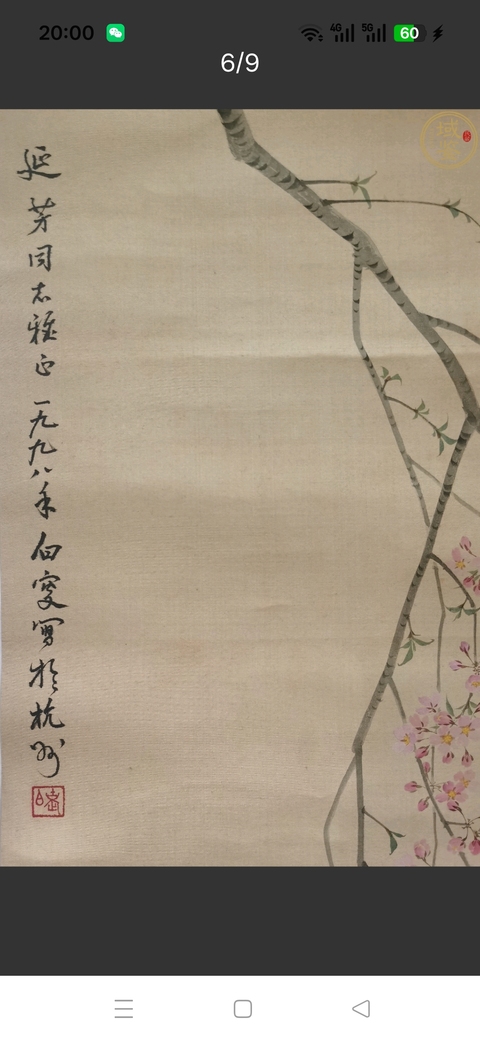 20:00
4G 5G 60
6/9
延芳同志雅正一九九八年白寫於杭州